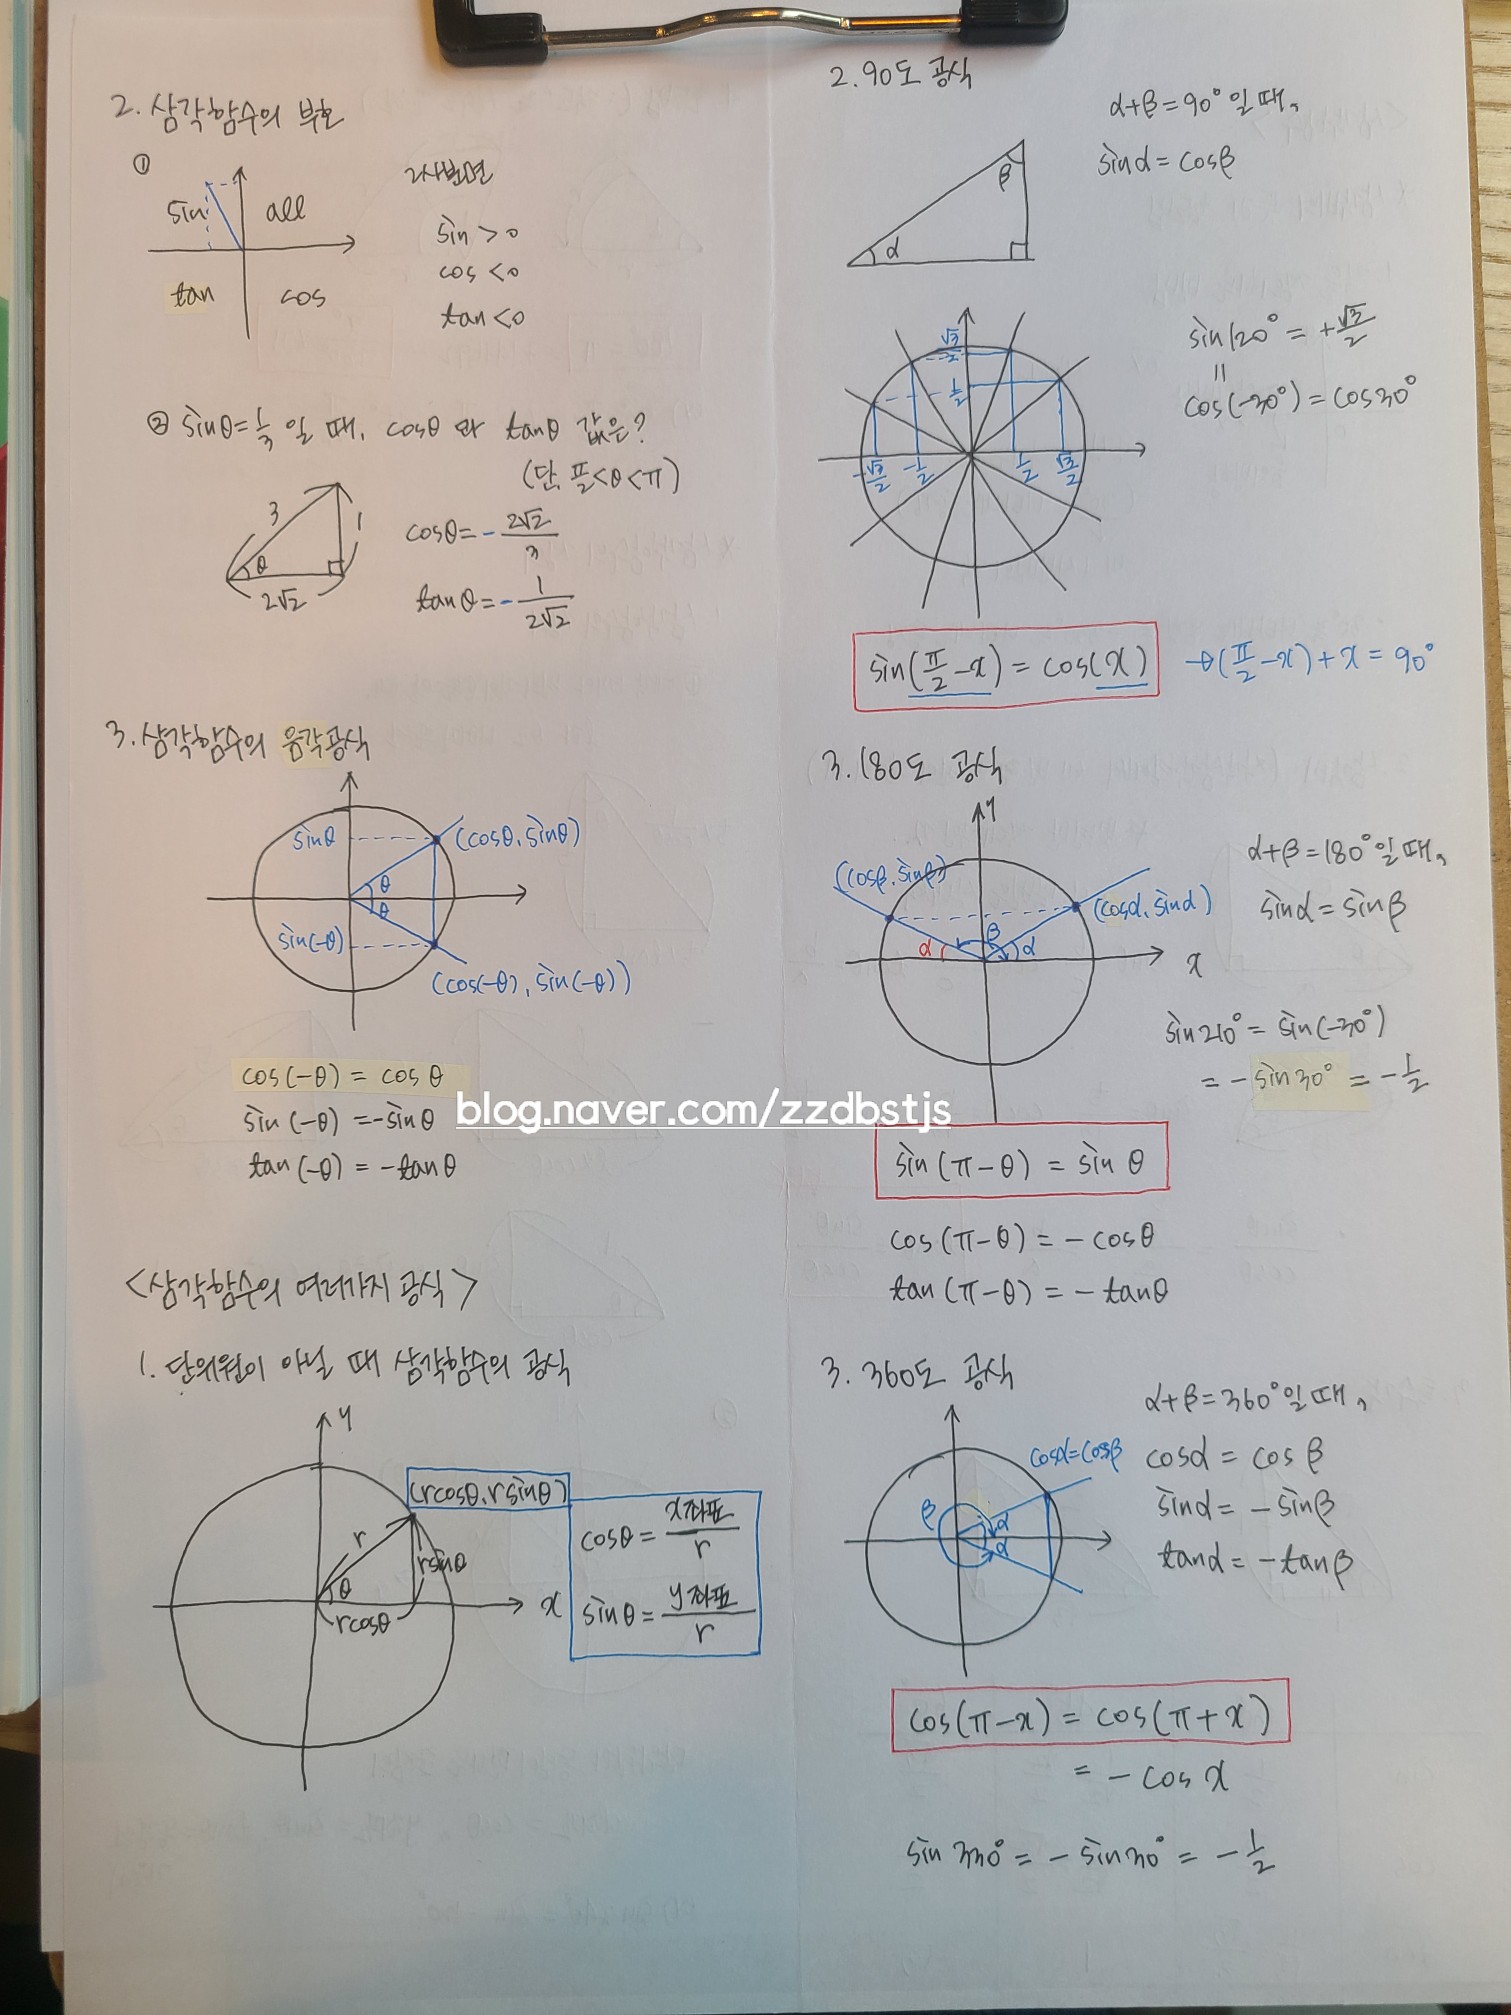 2. 삼각함수의 부호
①
sin all
tan cos
2사분면
sin > 0
cos < 0
tan < 0
② sinθ = 1/3 일 때, cosθ 와 tanθ 값은?
(단, π/2 < θ < π)
3
1
θ
2√2
cosθ = - 2√2/3
tanθ = - 1/2√2
3. 삼각함수의 음각공식
sinθ
(cosθ, sinθ)
θ
θ
sin(-θ)
(cos(-θ), sin(-θ))
cos(-θ) = cosθ
sin(-θ) = -sinθ
tan(-θ) = -tanθ
<삼각함수의 여러가지 공식>
1. 단위원이 아닐 때 삼각함수의 공식
y
(rcosθ, rsinθ)
r
θ
rsinθ
rcosθ
x
cosθ = x좌표/r
sinθ = y좌표/r
2. 90도 공식
α+β = 90° 일 때,
sinα = cosβ
β
α
√3/2
1/2
-√3/2 -1/2 1/2 √3/2
sin120° = +√3/2
=
cos(-30°) = cos30°
sin(π/2 - x) = cos(x) → (π/2 - x) + x = 90°
3. 180도 공식
y
α+β = 180° 일 때,
(cosβ, sinβ)
(cosα, sinα)
sinα = sinβ
α β α
x
sin210° = sin(-30°)
= - sin30° = - 1/2
sin(π-θ) = sinθ
cos(π-θ) = - cosθ
tan(π-θ) = - tanθ
3. 360도 공식
α+β = 360° 일 때,
cosα=cosβ
cosα = cosβ
β
α
α
sinα = - sinβ
tanα = - tanβ
cos(π-x) = cos(π+x)
= - cos x
sin 330° = - sin30° = - 1/2
blog.naver.com/zzdbstjs